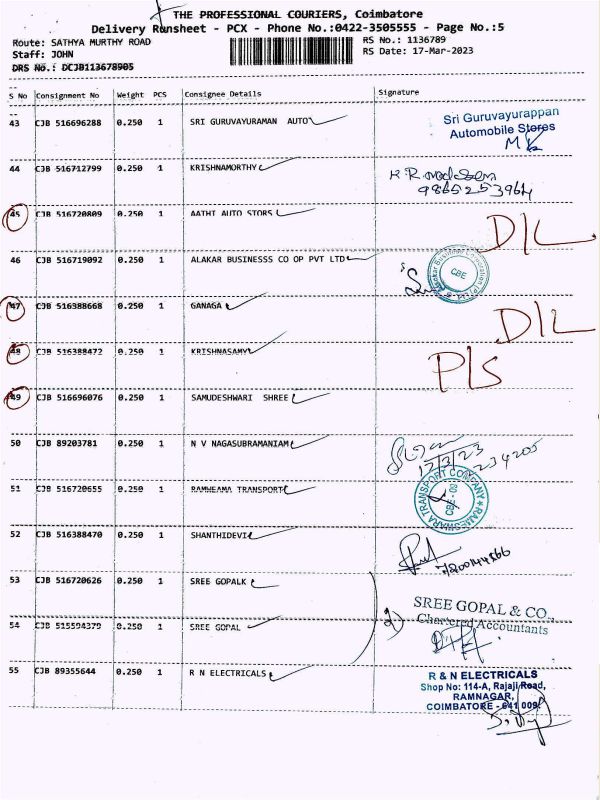 THE PROFESSIONAL COURIERS, Coimbatore
Delivery Runsheet - PCX - Phone No.:0422-3505555 - Page No.:5
Route: SATHYA MURTHY ROAD RS No.: 1136789
Staff: JOHN RS Date: 17-Mar-2023
DRS No.: DCJB113678905
S No Consignment No Weight PCS Consignee Details Signature
43 CJB 516696288 0.250 1 SRI GURUVAYURAMAN AUTO
Sri Guruvayurappan
Automobile Stores
44 CJB 516712799 0.250 1 KRISHNAMORTHY
9865253964
45 CJB 516720809 0.250 1 AATHI AUTO STORS
D/L
46 CJB 516719092 0.250 1 ALAKAR BUSINESSS CO OP PVT LTD
CBE
47 CJB 516388668 0.250 1 GANAGA
D/L
48 CJB 516388472 0.250 1 KRISHNASAMY
P/S
49 CJB 516696076 0.250 1 SAMUDESHWARI SHREE
50 CJB 89203781 0.250 1 N V NAGASUBRAMANIAM
17/3/23
234205
51 CJB 516720655 0.250 1 RAMWEAMA TRANSPORT
RAMESWARA TRANSPORT COMPANY
CBE - 09
52 CJB 516388470 0.250 1 SHANTHIDEVI
53 CJB 516720626 0.250 1 SREE GOPALK
SREE GOPAL & CO
Chartered Accountants
54 CJB 515594379 0.250 1 SREE GOPAL
2)
55 CJB 89355644 0.250 1 R N ELECTRICALS
R & N ELECTRICALS
Shop No: 114-A, Rajaji Road,
RAMNAGAR,
COIMBATORE - 641 009.